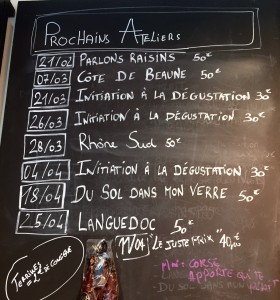 PROCHAINS ATELIERS
21/02 PARLONS RAISINS 50€
07/03 CÔTE DE BEAUNE 50€
21/03 INITIATION À LA DÉGUSTATION 30€
26/03 INITIATION À LA DÉGUSTATION 30€
28/03 RHÔNE SUD 50€
04/04 INITIATION À LA DÉGUSTATION 30€
18/04 DU SOL DANS MON VERRE 50€
25/04 LANGUEDOC 50€
11/04 "LE JUSTE PRIX" 40,00€
TERRINES
MAI: CORSE
APPORTE